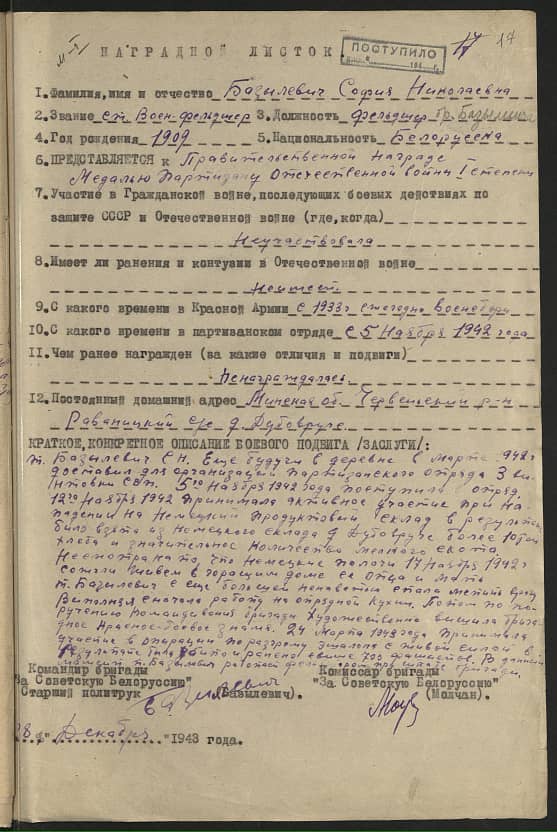 НАГРАДНОЙ ЛИСТОК.
ПОСТУПИЛО
17 17
1. Фамилия, имя и отчество Базылевич София Николаевна
2. Звание ст. Воен-фельдшер 3. Должность фельдшер
4. Год рождения 1909 5. Национальность Белорусска
6. ПРЕДСТАВЛЯЕТСЯ к Правительственной награде
Медалью Партизану Отечественной войны I степени
7. Участие в Гражданской войне, последующих боевых действиях по
защите СССР и Отечественной войне (где, когда)
Неучаствовала
8. Имеет ли ранения и контузии в Отечественной войне
Неимеет
9. С какого времени в Красной Армии с 1933г ежегодно
10. С какого времени в партизанском отряде с 5 Ноября 1942 года
11. Чем ранее награжден (за какие отличия и подвиги)
Ненаграждалась
12. Постоянный домашний адрес Минская об. Червенский р-н
Раваницкий с/с д. Дубовруче
КРАТКОЕ, КОНКРЕТНОЕ ОПИСАНИЕ БОЕВОГО ПОДВИГА /ЗАСЛУГИ/:
т. Базылевич С.Н. Еще будучи в деревне в Марте 942г
доставил для организации Партизанского отряда 3 вин
товки 5го Ноября 1942 года поступила в отряд.
12го Ноября 1942 принимала активное участие при На
падении на Немецкий Продуктовый склад в результате
было взято из Немецкого склада д Дубовруче более 10 тон
хлеба и значительное количество мелкого скота.
Несмотря на то что Немецкие полачи 17 Ноября 1942г
сожгли живьем в горящим доме ее Отца и Мать
т. Базылевич с еще большей ненавистью стала мстить врагу
Выполняя сначала работу на отрядной Кухни. Потом по по
ручению командования бригады Художественно вышила Брига
дное Красное-боевое знамя. 24 Марта 1943 года Принимала
участие в операции по разгрому эшалона с живой силой в
Результате было убито и ранено свыше 700 фашистов. В данный
момент т. Базылевич работает фельдшером при штабе бригады.
Командир бригады Комиссар бригады
"За Советскую Белоруссию" "За Советскую Белоруссию"
Старший политрук (Базылевич). (Молчан).
28 " Декабрь "1943 года.